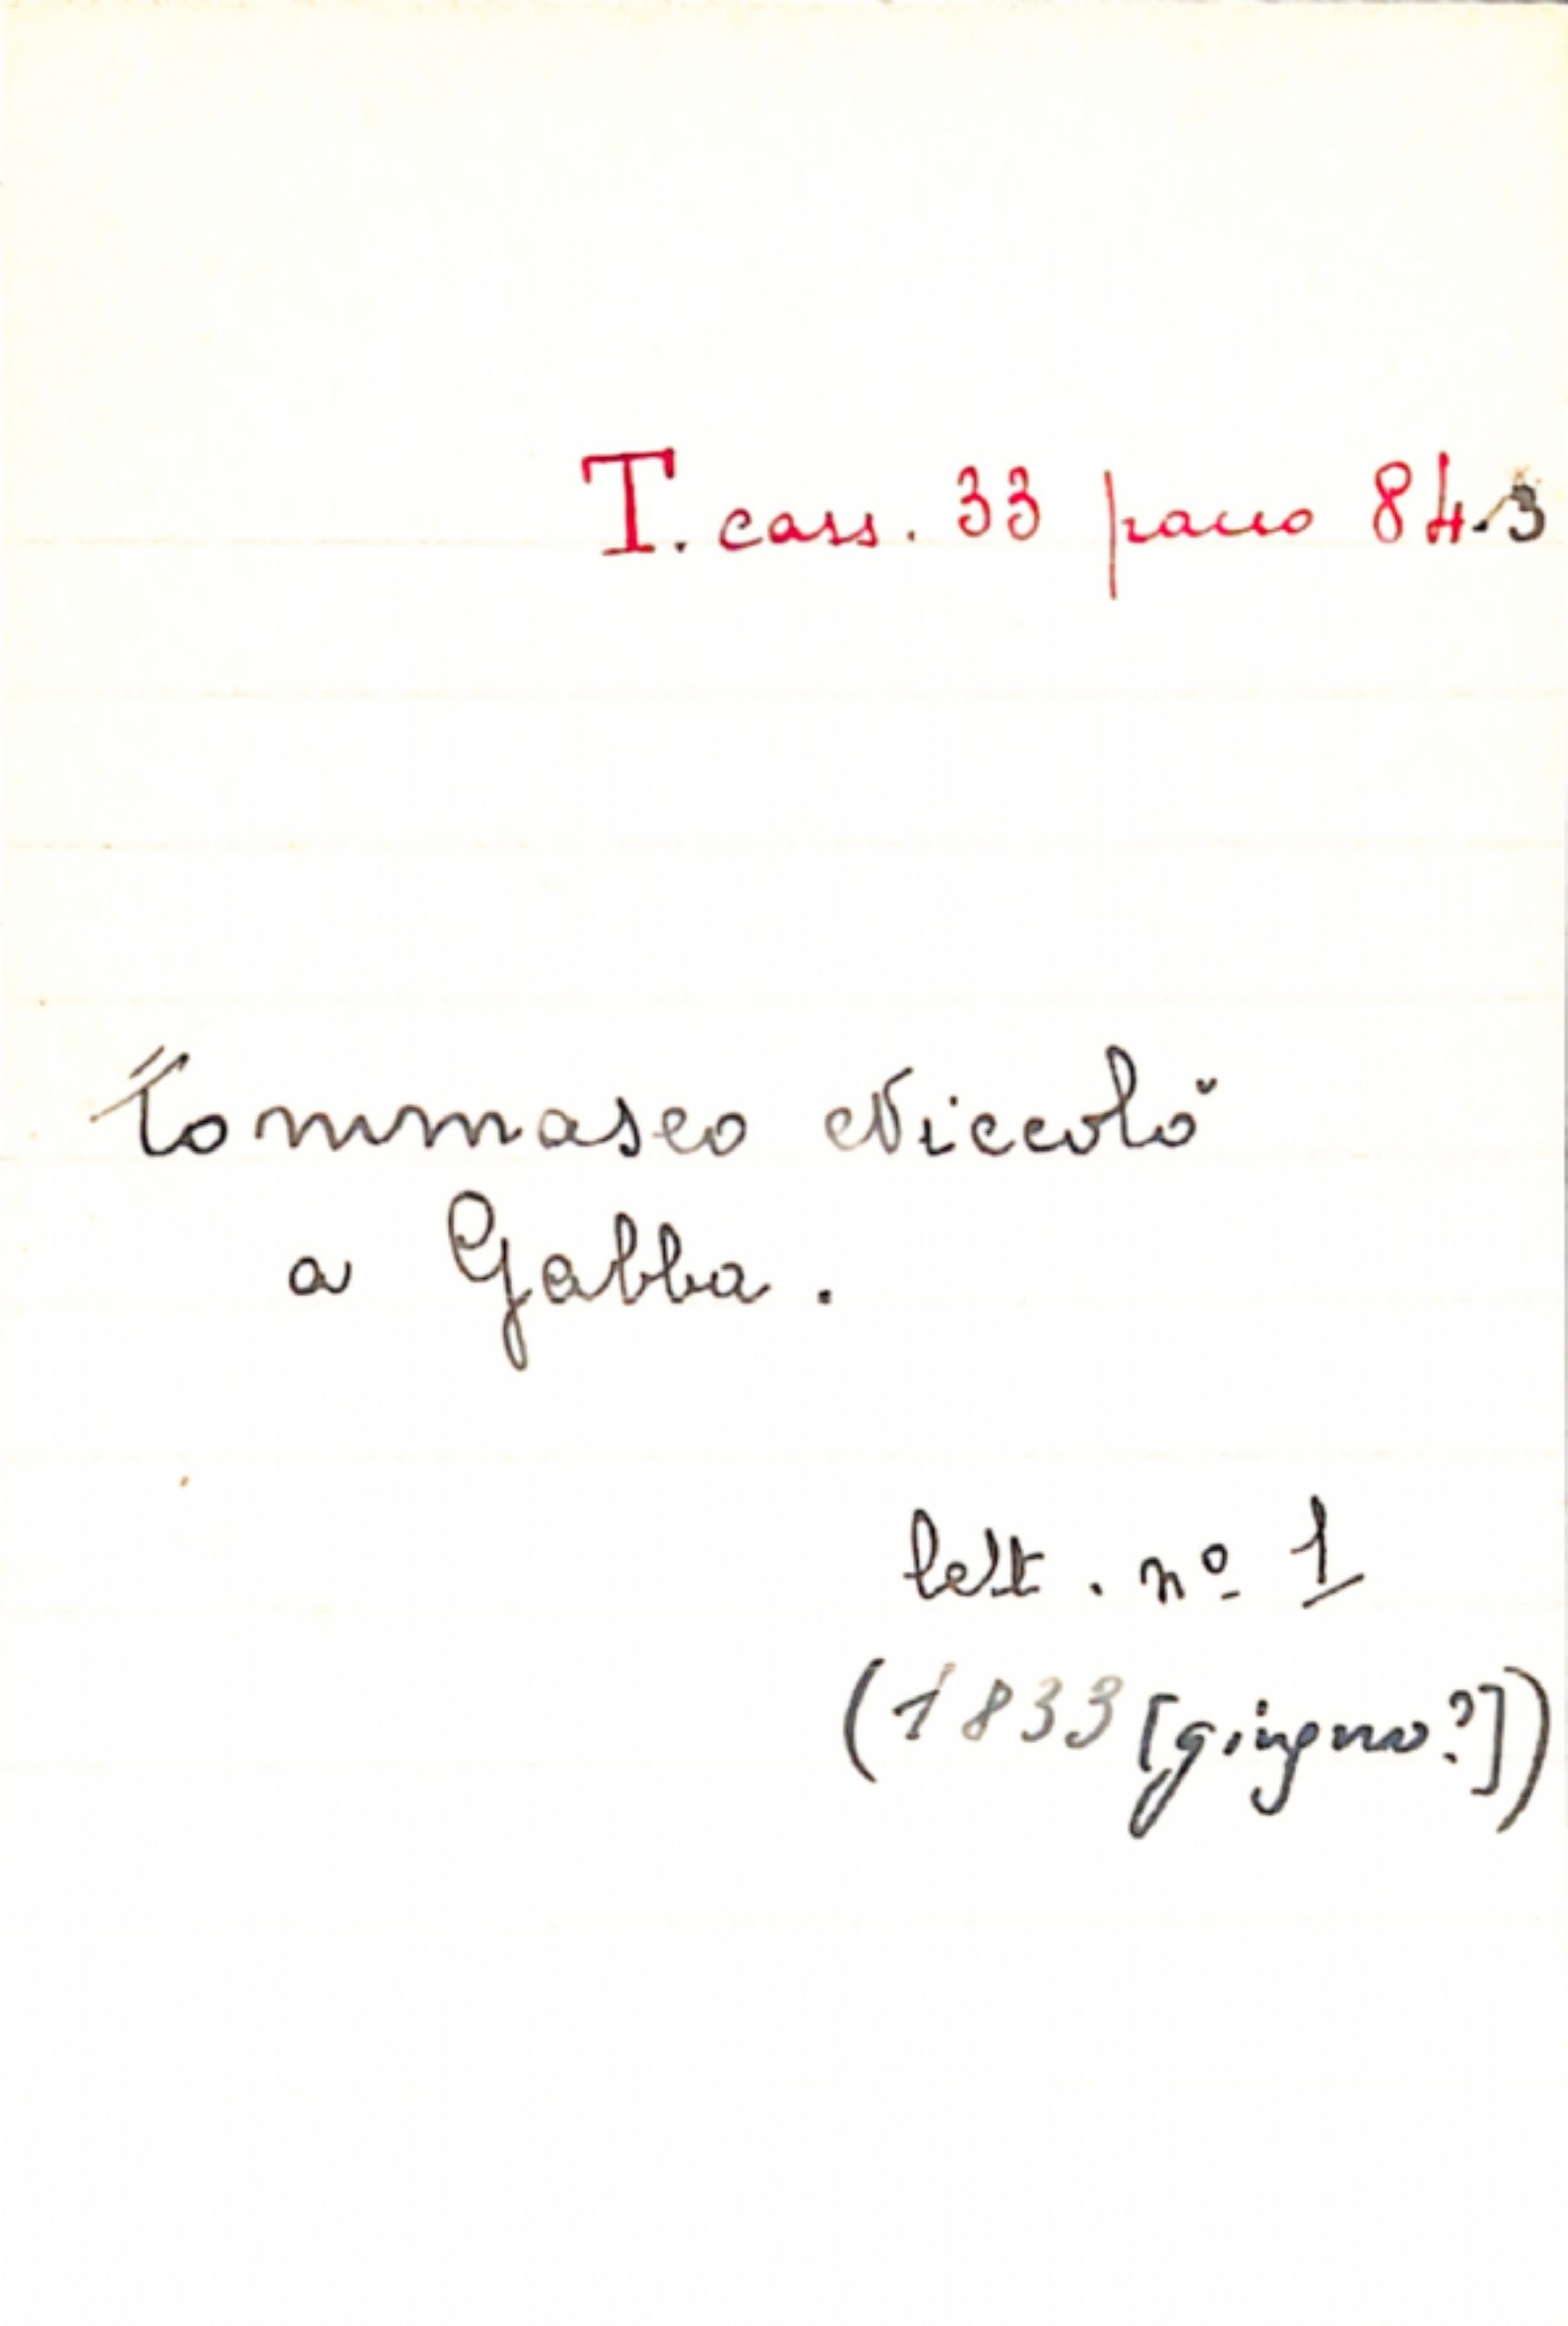 T. cass. 33 pacco 84.3
Tommaseo Niccolò
a Gabba.
lett. nº 1
(1833 [giugno?])